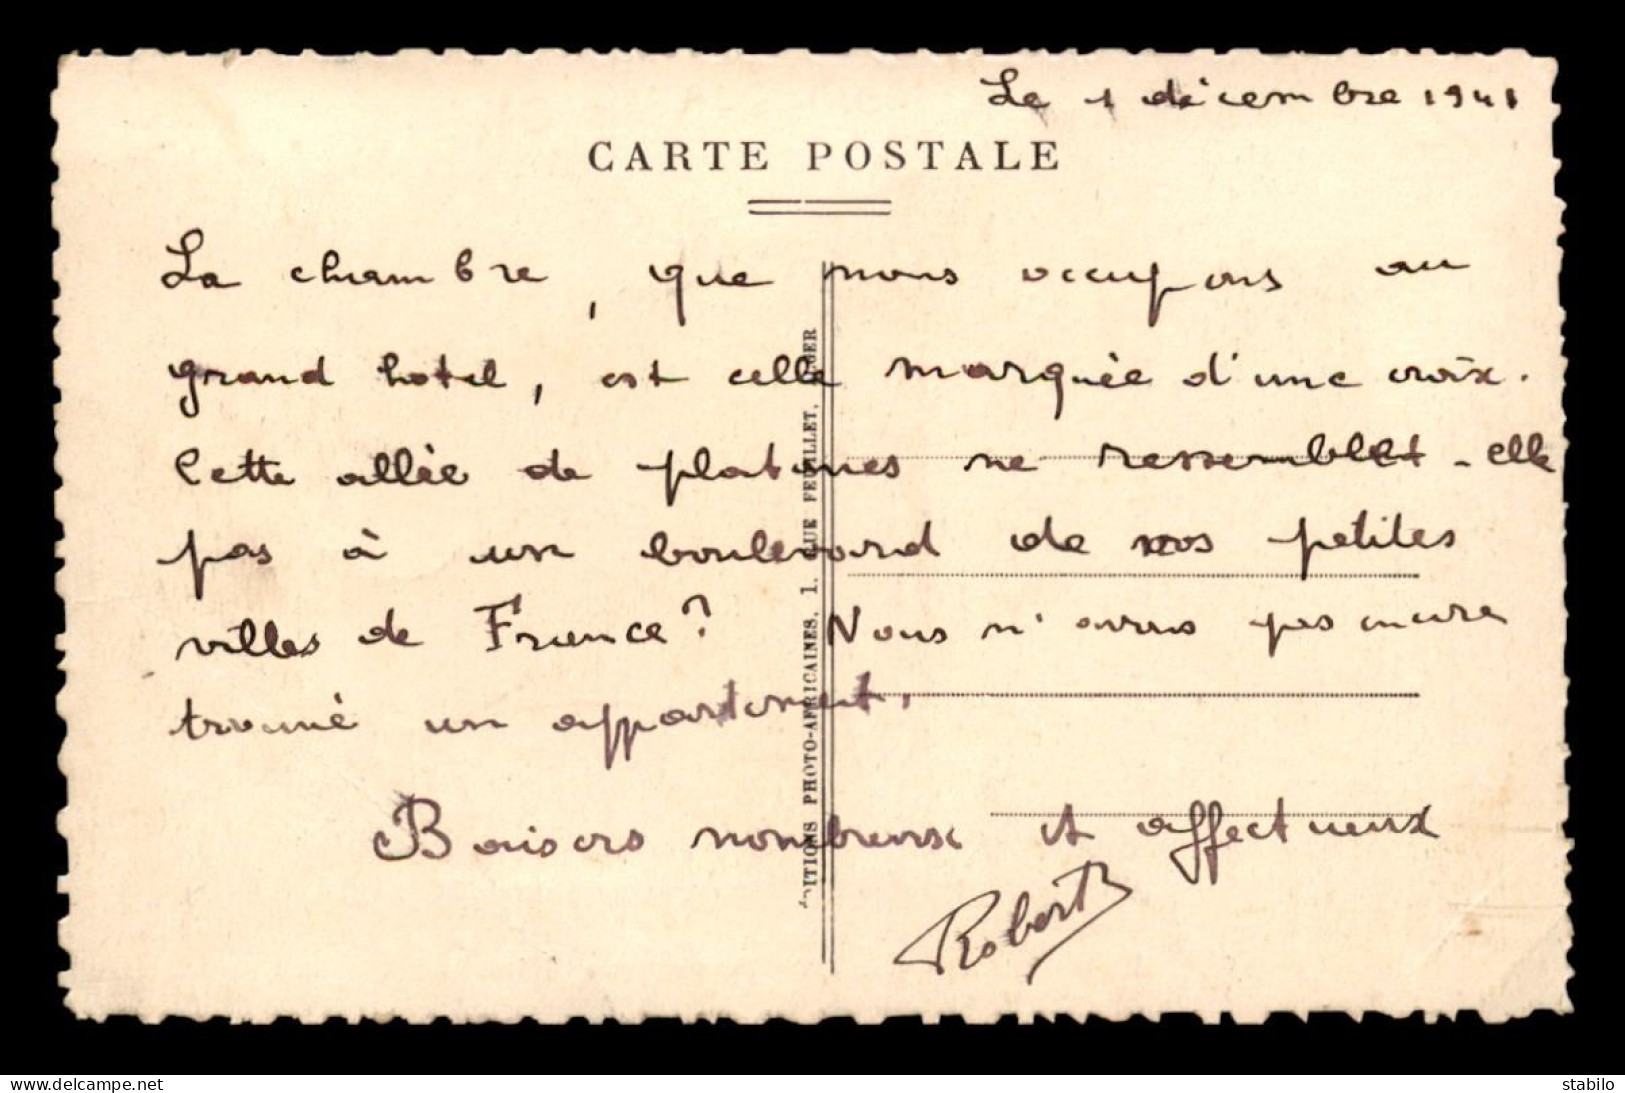 Le 1 décembre 1941
CARTE POSTALE
La chambre, que nous occupons au
grand hotel, est celle marquée d'une croix.
Cette allée de platanes ne ressemblet-elle
pas à un boulevard de nos petites
villes de France? Nous n'avons pas encore
trouvé un appartement.
Baisers nombreux et affectueux
Robert
ÉDITIONS PHOTO-AFRICAINES, 1, RUE FEUILLET, ALGER
www.delcampe.net
stabilo